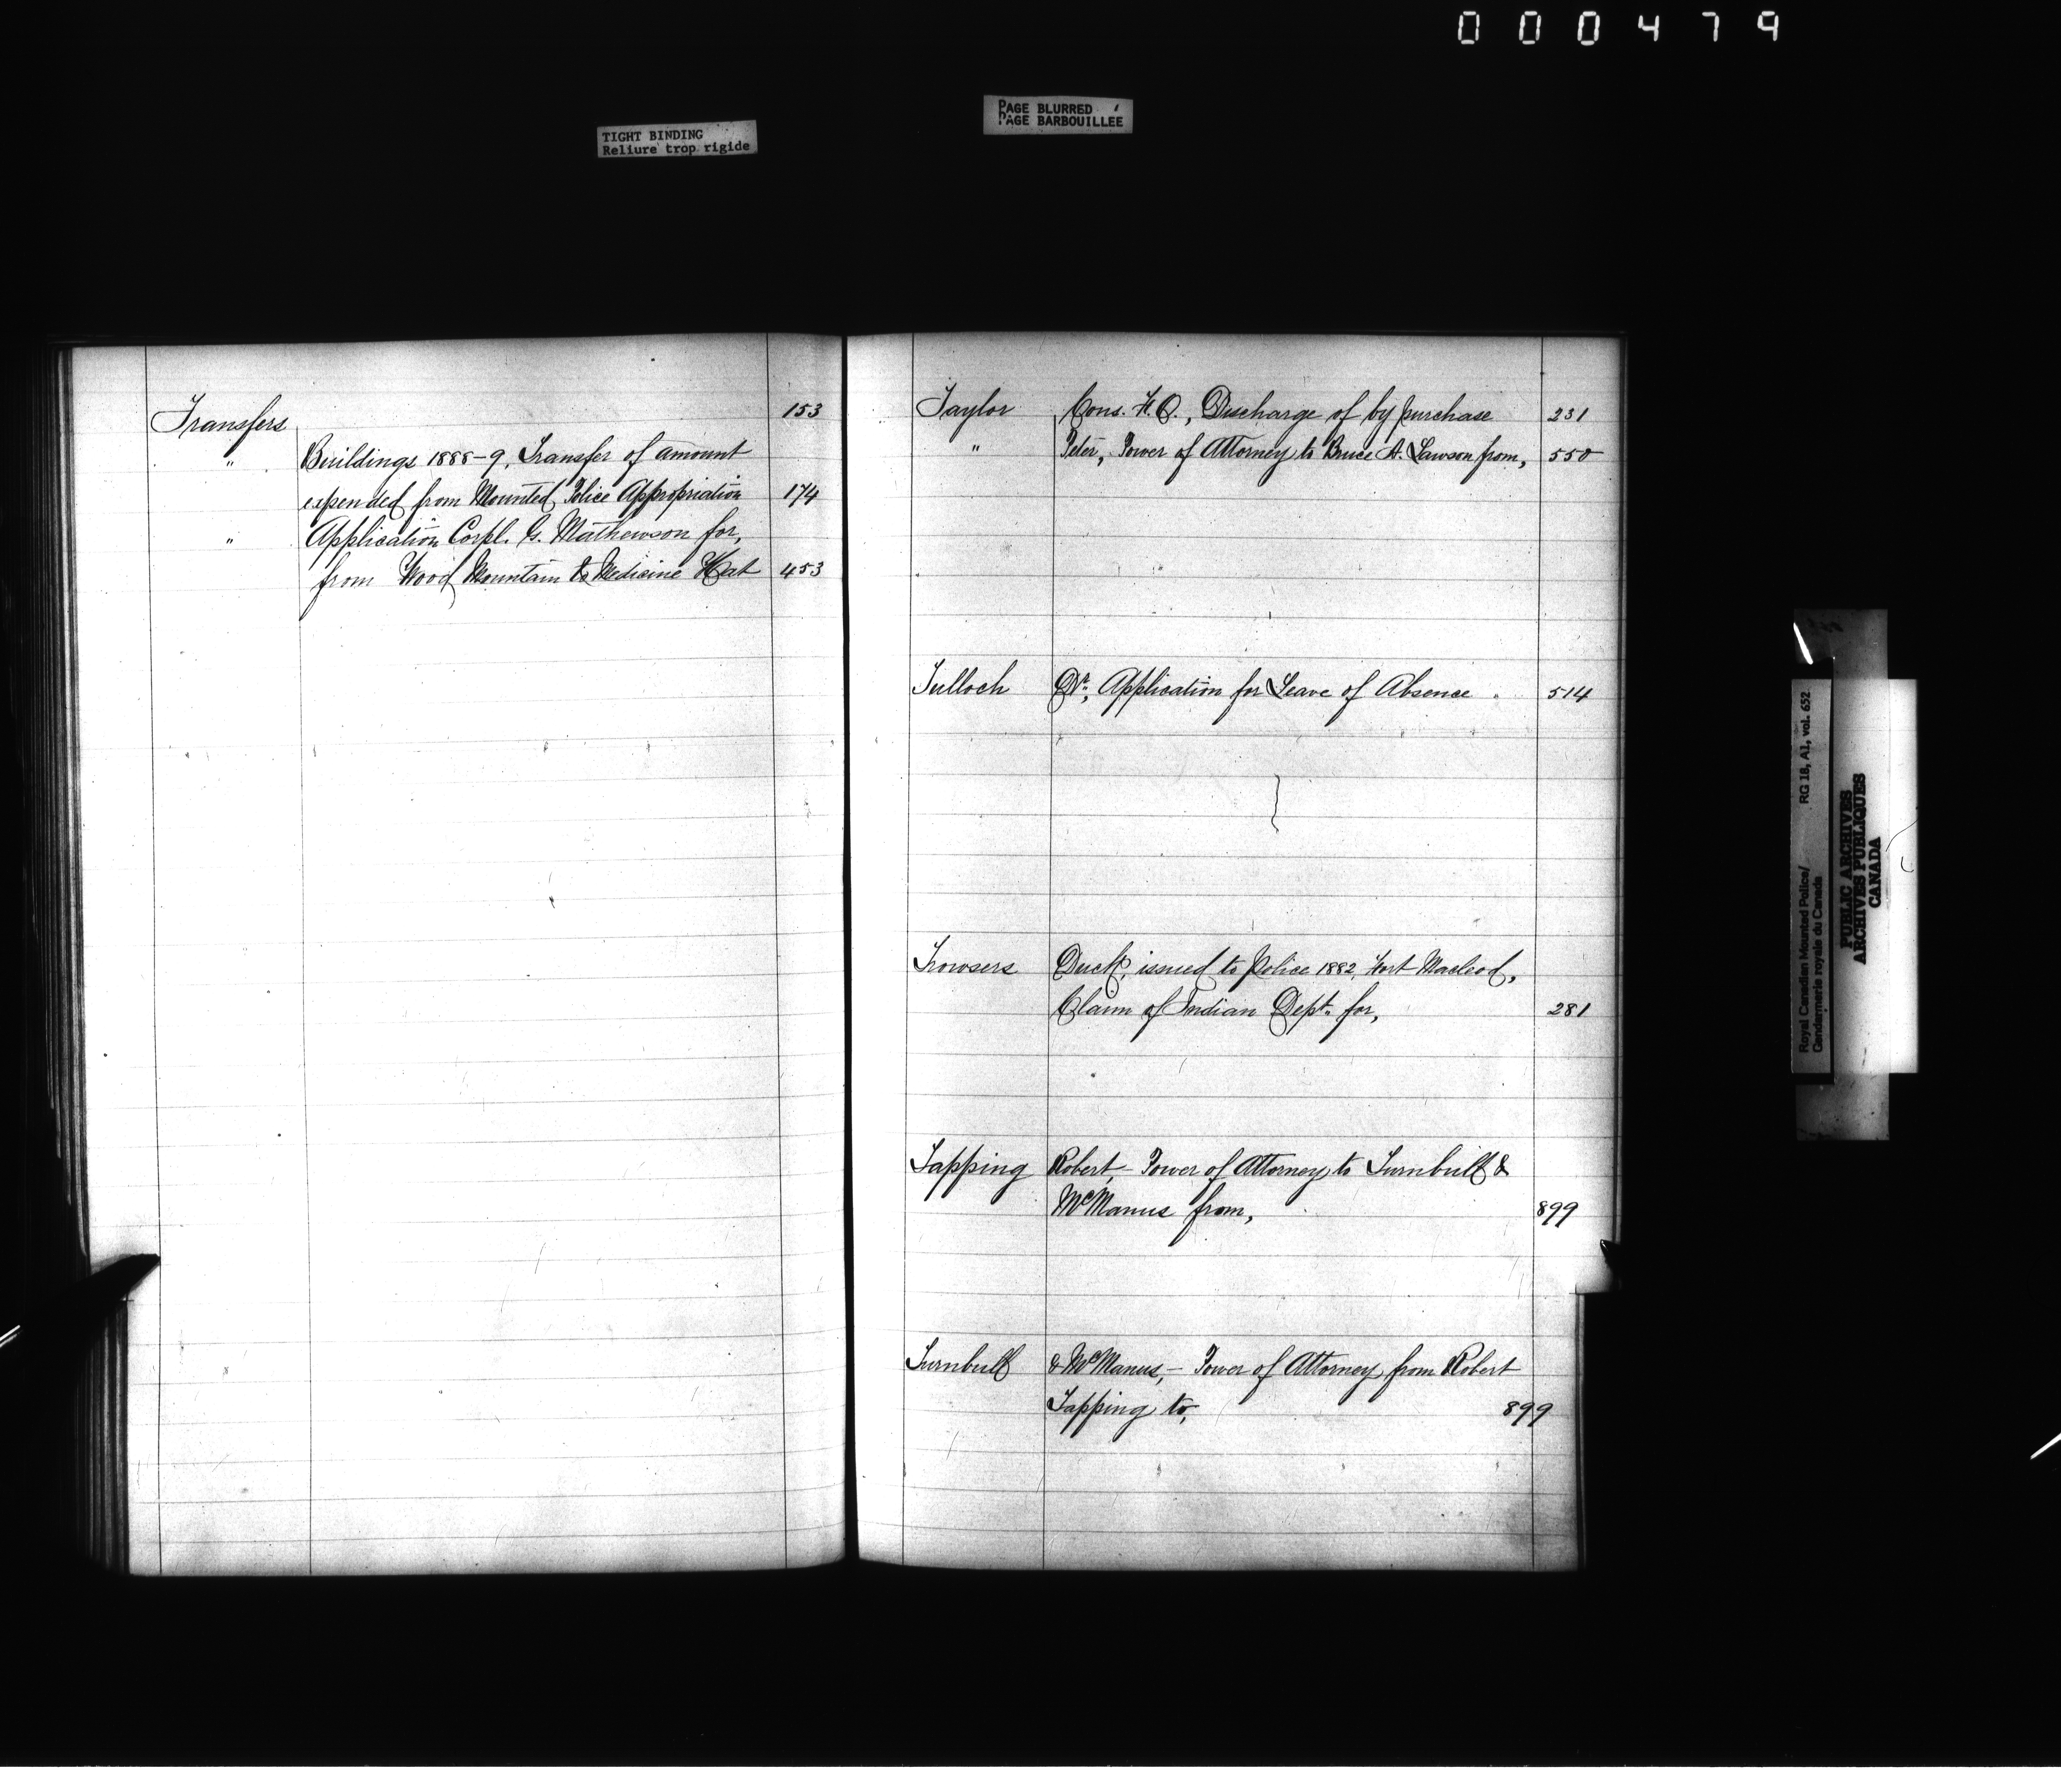 000479
TIGHT BINDING
Reliure trop rigide
PAGE BLURRED
PAGE BARBOUILLÉE
Transfers 153
" Buildings 1888-9, Transfer of amount
expended from Mounted Police Appropriation 174
" Application Corpl. G. Mathewson for,
from Wood Mountain to Medicine Hat 453
Taylor Cons. H.O., Discharge of by purchase 231
" Peter, Power of Attorney to Bruce A. Lawson from, 550
Tulloch Dr., Application for Leave of Absence 514
Trowsers Duck, issued to Police 1882, Fort Macleod,
Claim of Indian Dept. for, 281
Tapping Robert, Power of Attorney to Turnbull &
McManus from, 899
Turnbull & McManus, - Power of Attorney from Robert
Tapping to, 899
Royal Canadian Mounted Police/ RG 18, A1, vol. 652
Gendarmerie royale du Canada
PUBLIC ARCHIVES
ARCHIVES PUBLIQUES
CANADA